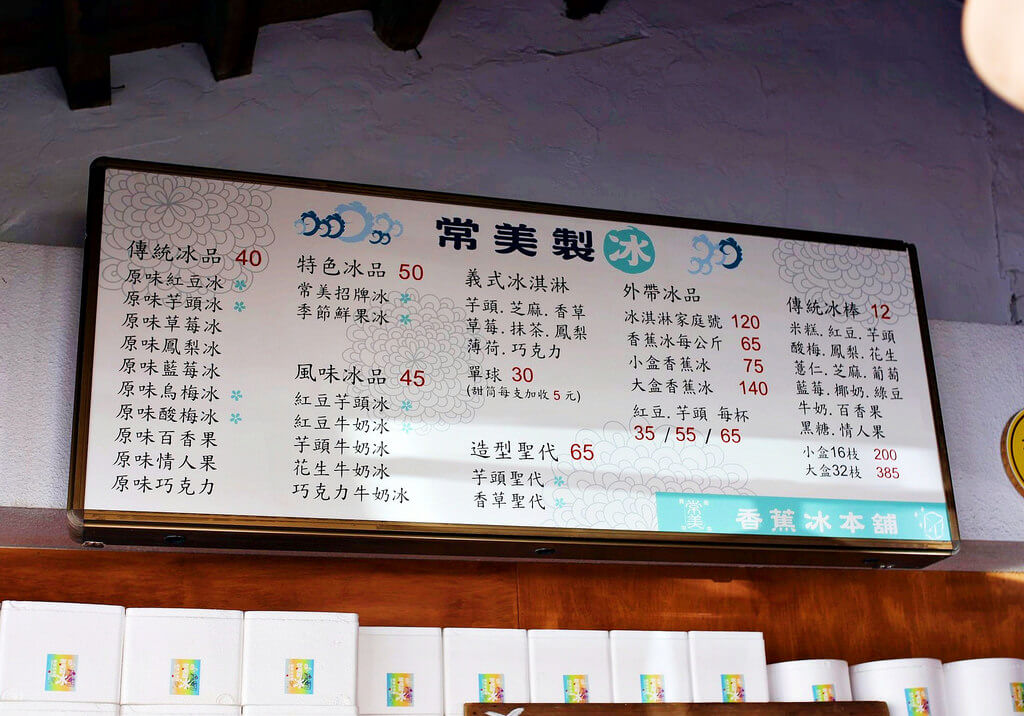 常美製冰
傳統冰品 40
原味紅豆冰
原味芋頭冰
原味草莓冰
原味鳳梨冰
原味藍莓冰
原味烏梅冰
原味酸梅冰
原味百香果
原味情人果
原味巧克力
特色冰品 50
常美招牌冰
季節鮮果冰
風味冰品 45
紅豆芋頭冰
紅豆牛奶冰
芋頭牛奶冰
花生牛奶冰
巧克力牛奶冰
義式冰淇淋
芋頭.芝麻.香草
草莓.抹茶.鳳梨
薄荷.巧克力
單球 30
(甜筒每支加收 5 元)
造型聖代 65
芋頭聖代
香草聖代
外帶冰品
冰淇淋家庭號 120
香蕉冰每公斤 65
小盒香蕉冰 75
大盒香蕉冰 140
紅豆.芋頭 每杯
35 / 55 / 65
傳統冰棒 12
米糕.紅豆.芋頭
酸梅.鳳梨.花生
薏仁.芝麻.葡萄
藍莓.椰奶.綠豆
牛奶.百香果
黑糖.情人果
小盒16枝 200
大盒32枝 385
常美
香蕉冰本舖